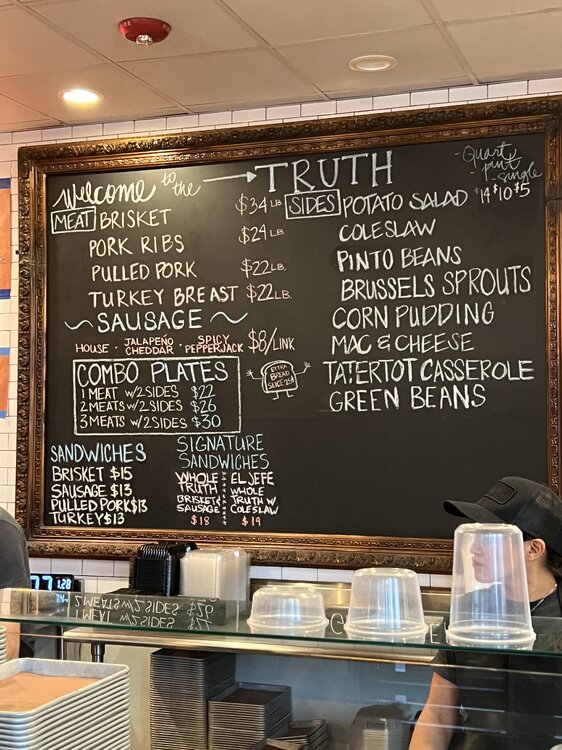 Welcome to the → TRUTH
-Quart
pint
-single
$14 $10 $5
MEAT BRISKET $34 LB
PORK RIBS $24 LB
PULLED PORK $22 LB.
TURKEY BREAST $22 LB.
~ SAUSAGE ~
HOUSE · JALAPEÑO CHEDDAR · SPICY PEPPERJACK $8/LINK
COMBO PLATES
1 MEAT W/2 SIDES $22
2 MEATS W/2 SIDES $26
3 MEATS W/2 SIDES $30
EXTRA
BREAD
SLICE 25¢
SIDES POTATO SALAD
COLESLAW
PINTO BEANS
BRUSSELS SPROUTS
CORN PUDDING
MAC & CHEESE
TATERTOT CASSEROLE
GREEN BEANS
SANDWICHES
BRISKET $15
SAUSAGE $13
PULLED PORK $13
TURKEY $13
SIGNATURE
SANDWICHES
WHOLE
TRUTH
BRISKET &
SAUSAGE
$18
EL JEFE
WHOLE
TRUTH W/
COLESLAW
$19
1.28
2 MEATS W/2 SIDES $26
1 MEAT W/2 SIDES